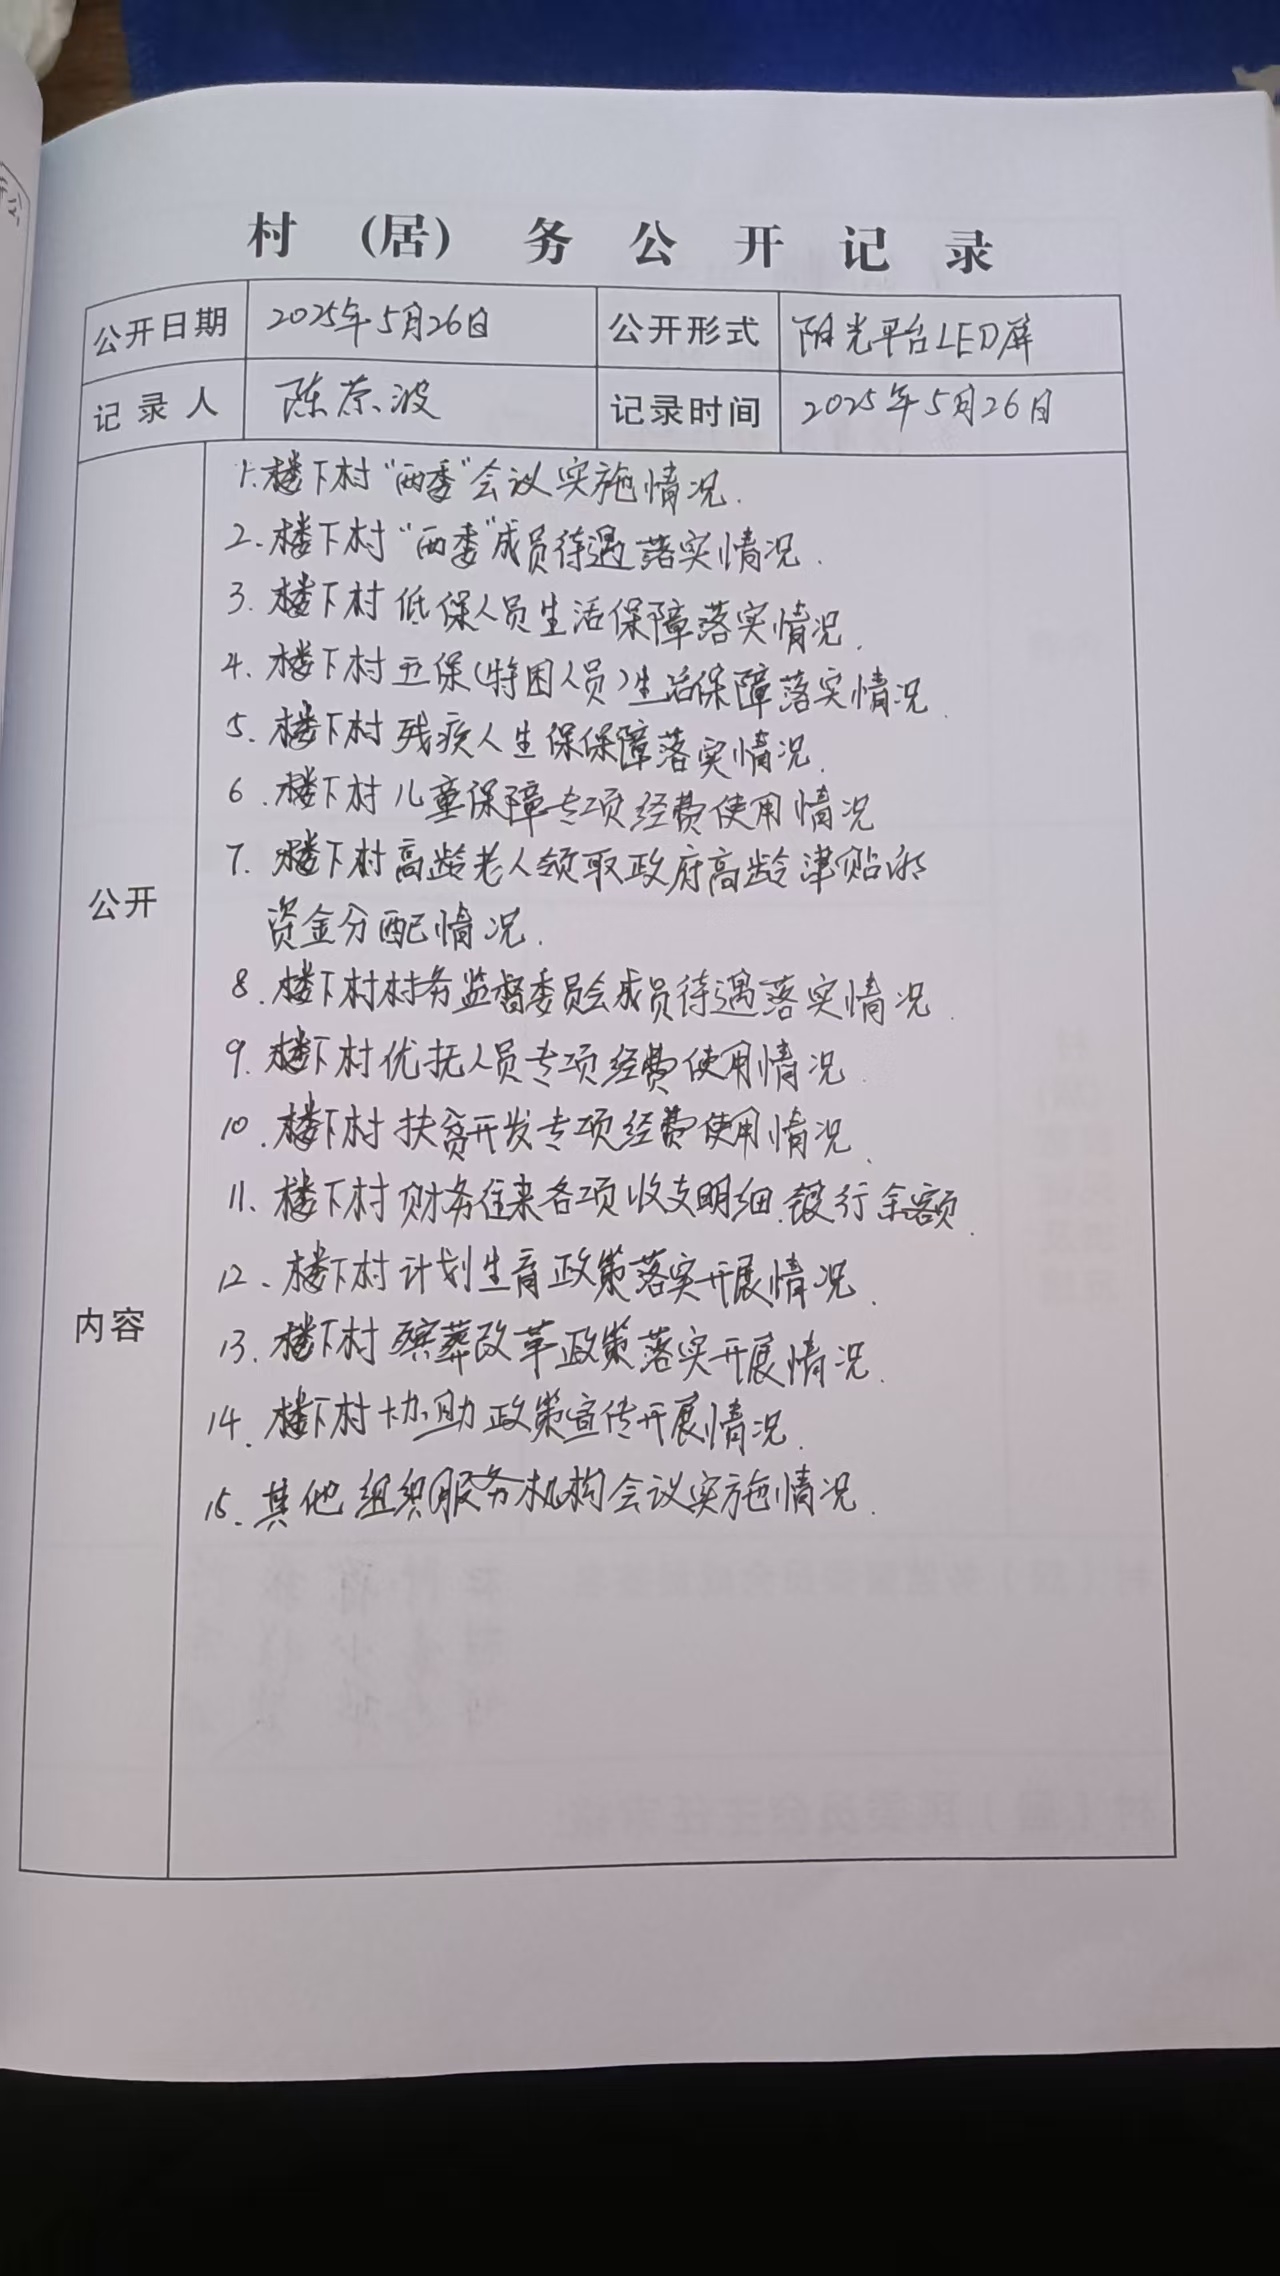 村（居）务公开记录
公开日期 2025年5月26日 公开形式 阳光平台LED屏
记录人 陈荣波 记录时间 2025年5月26日
公开内容
1.楼下村“两委”会议实施情况.
2.楼下村“两委”成员待遇落实情况.
3.楼下村低保人员生活保障落实情况.
4.楼下村五保(特困人员)生活保障落实情况.
5.楼下村残疾人生保保障落实情况.
6.楼下村儿童保障专项经费使用情况
7.楼下村高龄老人领取政府高龄津贴的
资金分配情况.
8.楼下村村务监督委员会成员待遇落实情况.
9.楼下村优抚人员专项经费使用情况.
10.楼下村扶贫开发专项经费使用情况.
11.楼下村财务往来各项收支明细.银行余额.
12、楼下村计划生育政策落实开展情况.
13.楼下村殡葬改革政策落实开展情况.
14.楼下村协助政策宣传开展情况.
15.其他组织服务机构会议实施情况.